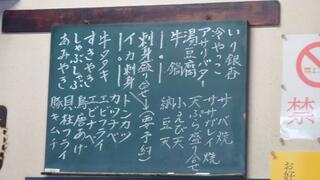 いり銀杏
冷やっこ
アサリバター
湯豆腐
牛鍋
刺身盛り合せ(要予約)
イカ刺身
牛タタキ
すきやき
しゃぶしゃぶ
あみやき
サバ焼
ササゲイ焼
天ぷら盛り合せ
えび天
納豆天
トンカツ
カツナベ
エビナベ
エビフライ
鳥唐あげ
貝柱フライ
豚キムチ
禁
お好